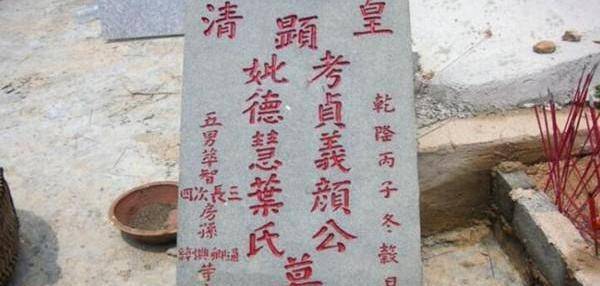 皇清
顯
考貞義顏公
妣德慧葉氏
墓
乾隆丙子冬穀旦
五男萃智
長次四三房孫